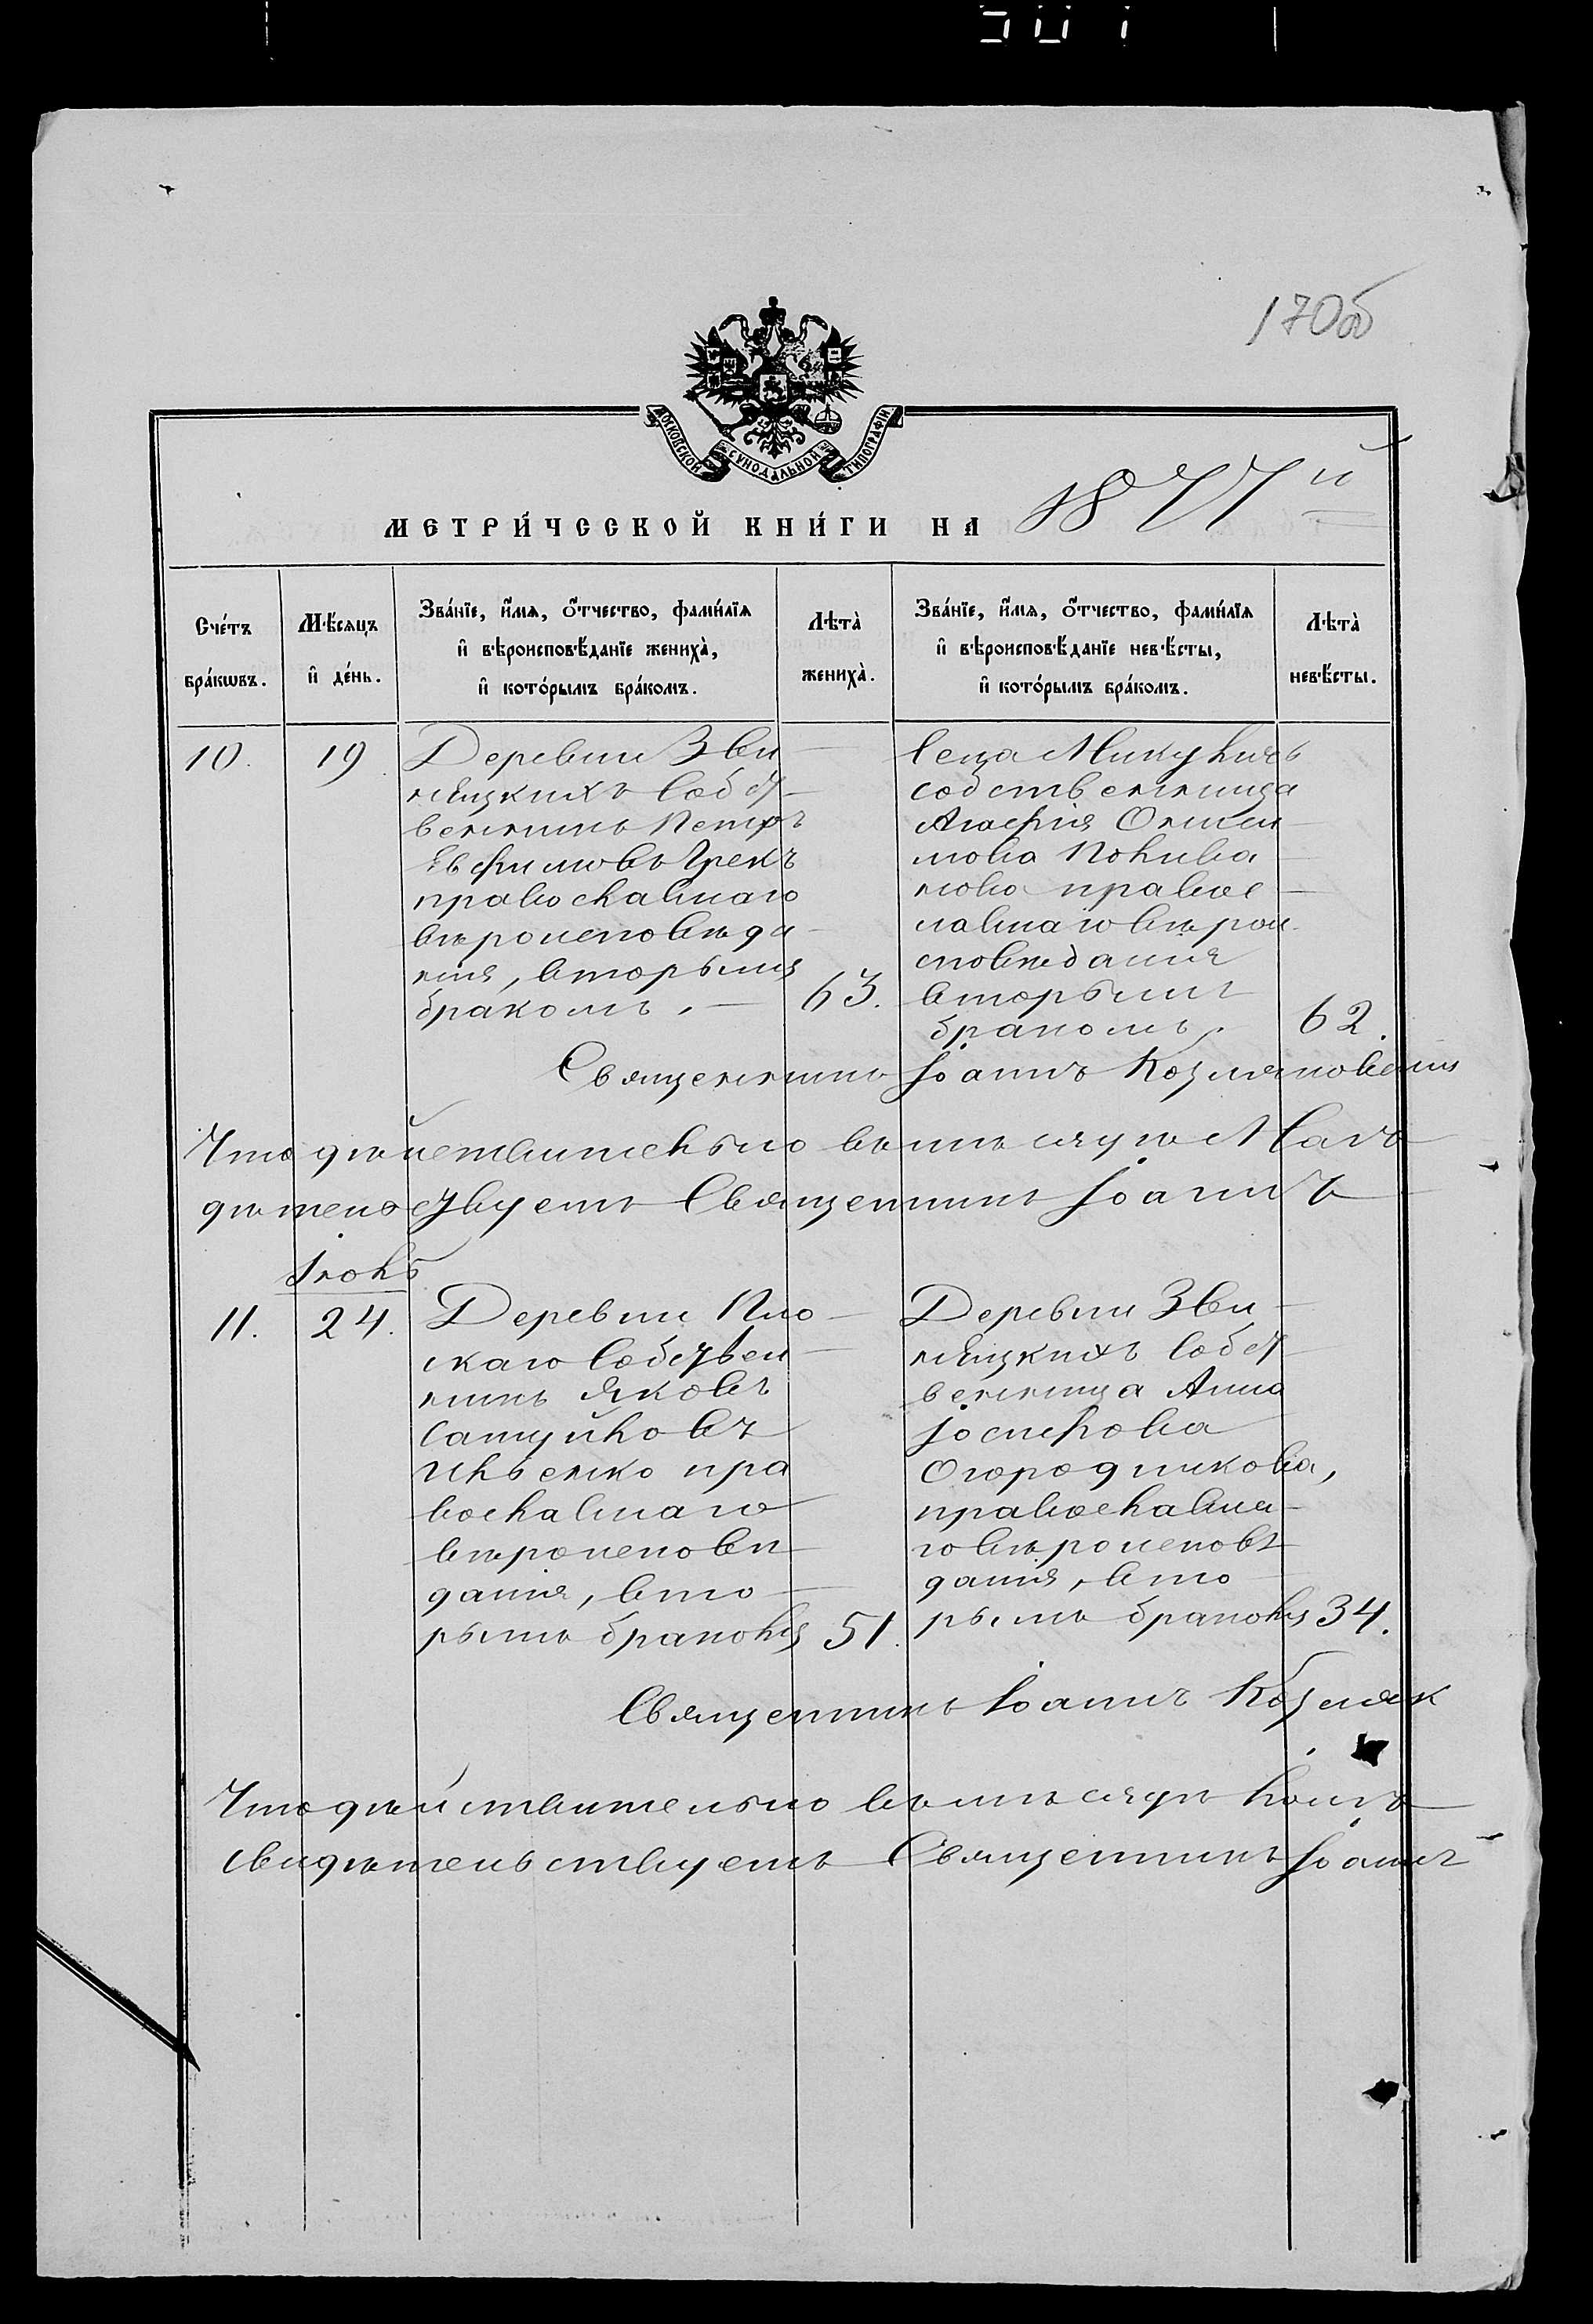 170об
МОСКОВСКОЙ СѴНОДАЛЬНОЙ ТИПОГРАФІИ
МЕТРИ́ЧЕСКОЙ КНИ́ГИ НА 1877й
Сче́тъ бра́кѡвъ.
Мѣ́сяцъ и҆ де́нь.
Зва́нїе, и҆́мѧ, о҆́тчество, фами́лїѧ и҆ вѣроисповѣ́данїе жениха̀, и҆ кото́рымъ бра́комъ.
Лѣта̀ жениха̀.
Зва́нїе, и҆́мѧ, о҆́тчество, фами́лїѧ и҆ вѣроисповѣ́данїе невѣ́сты, и҆ кото́рымъ бра́комъ.
Лѣта̀ невѣ́сты.
10.
19.
Деревни Зви
няцкихъ собст
венникъ Петръ
Евфимовъ Грекъ
православнаго
вѣроисповѣда
нія, вторымъ
бракомъ.
63.
Села
собственница
Агафія
мова
нова правос
лавнаго вѣрои
сповѣданія
вторымъ
бракомъ.
62.
Священникъ Іоаннъ
Что дѣйствительно въ мѣсяцѣ Маѣ
Священникъ Іоаннъ
Іюль
11.
24.
Деревни Пло
скаго собствен
никъ Яковъ
Самуйловъ
Ильенко пра
вославнаго
вѣроисповѣ
данія, вто
рымъ бракомъ
51.
Деревни Зви
няцкихъ собст
венница Анна
Іосифова
Огородникова,
православна
го вѣроисповѣ
данія, вто
рымъ бракомъ
34.
Священникъ Іоаннъ
Что дѣйствительно въ мѣсяцѣ
свидѣтельствуетъ Священникъ Іоаннъ